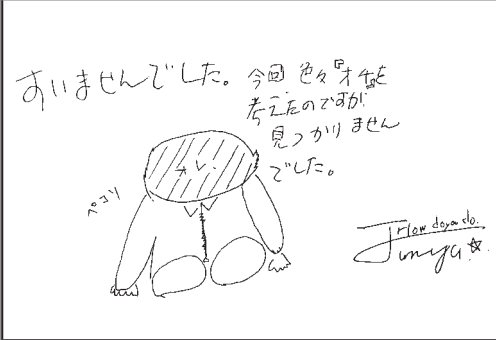 すいませんでした。
今回 色々『オチ』を
考えたのですが
見つかりません
でした。
ペコリ
How do you do.
Junya